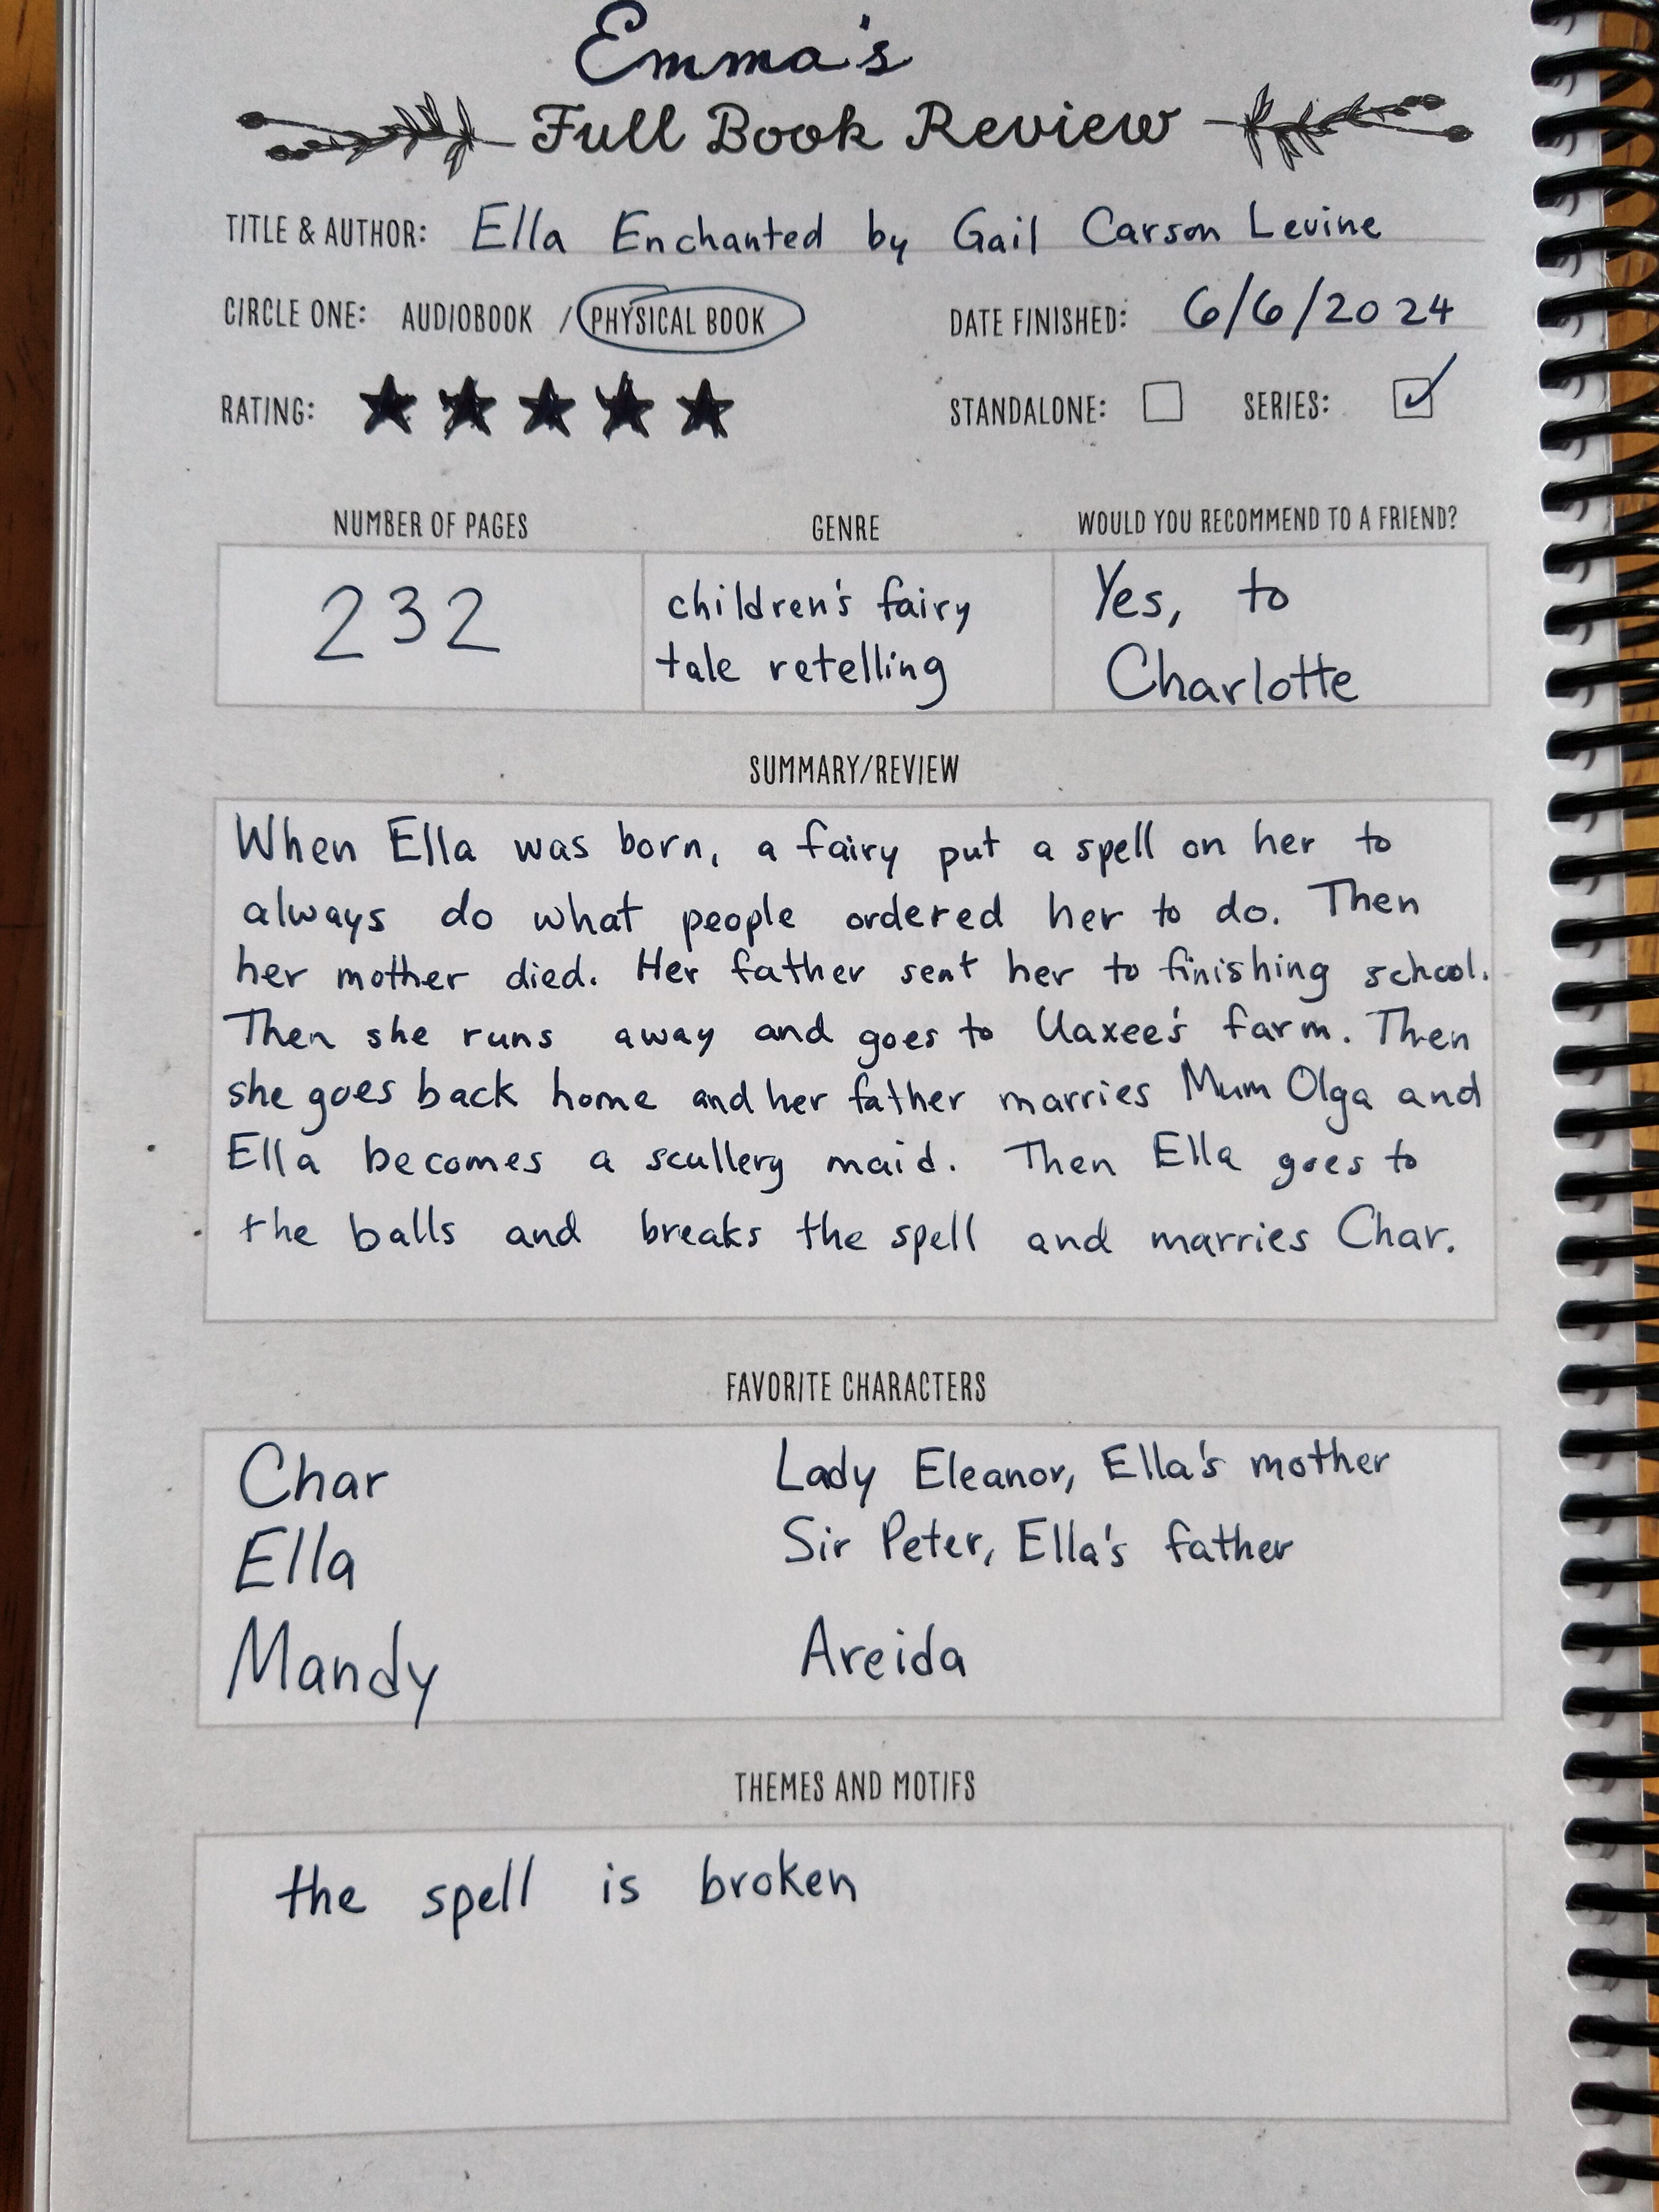 Emma's
Full Book Review
TITLE & AUTHOR: Ella Enchanted by Gail Carson Levine
CIRCLE ONE: AUDIOBOOK / PHYSICAL BOOK DATE FINISHED: 6/6/2024
RATING: STANDALONE: SERIES:
NUMBER OF PAGES GENRE WOULD YOU RECOMMEND TO A FRIEND?
232
children's fairy
tale retelling
Yes, to
Charlotte
SUMMARY/REVIEW
When Ella was born, a fairy put a spell on her to
always do what people ordered her to do. Then
her mother died. Her father sent her to finishing school.
Then she runs away and goes to Uaxee's farm. Then
she goes back home and her father marries Mum Olga and
Ella becomes a scullery maid. Then Ella goes to
the balls and breaks the spell and marries Char.
FAVORITE CHARACTERS
Char
Ella
Mandy
Lady Eleanor, Ella's mother
Sir Peter, Ella's father
Areida
THEMES AND MOTIFS
the spell is broken